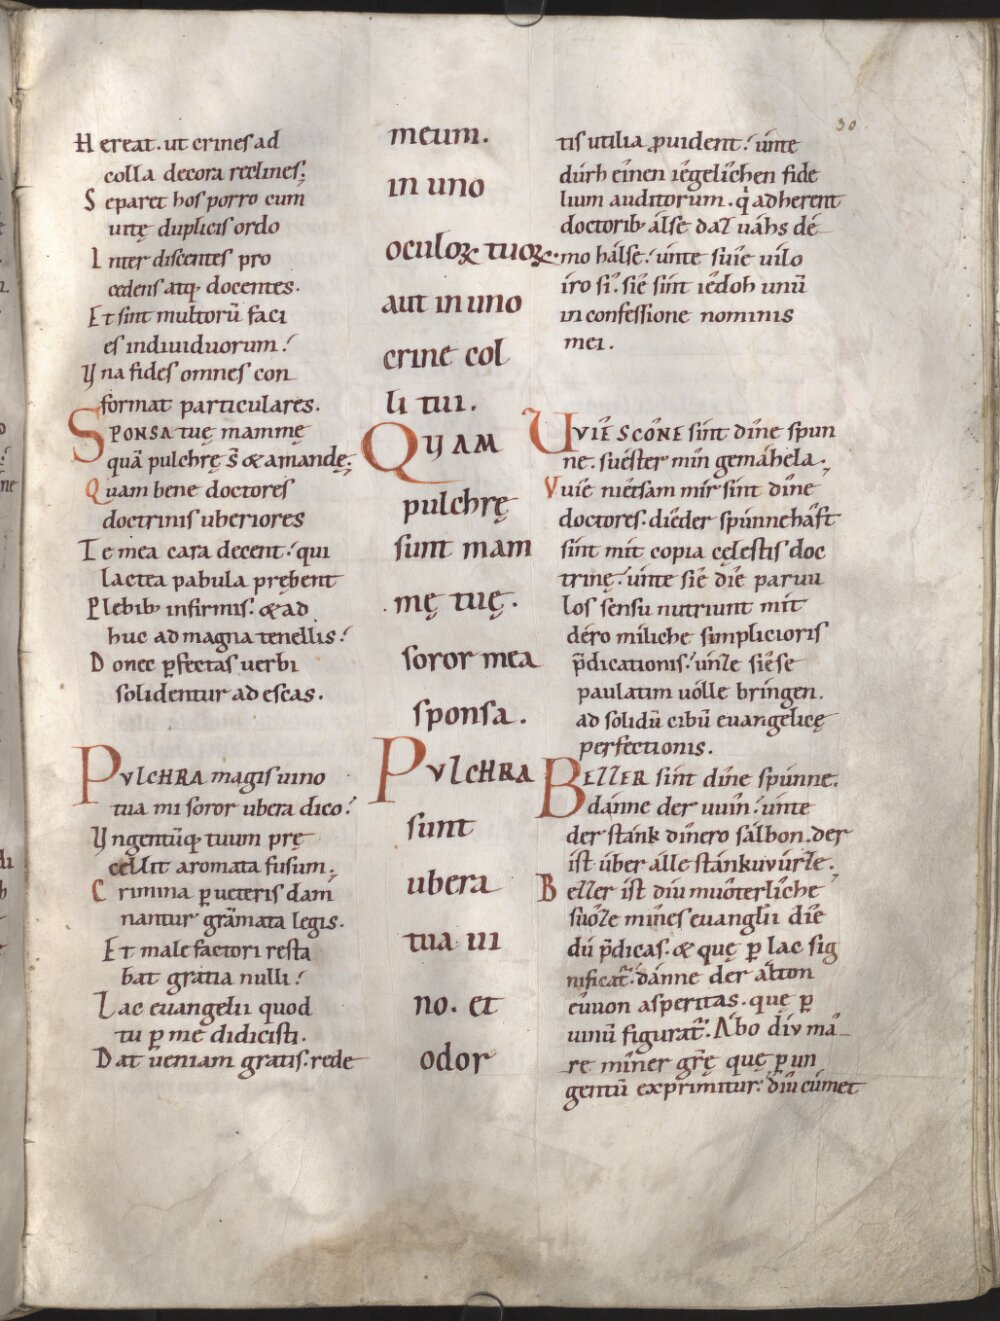 30.
Hereat. ut crines ad
colla decora reclines;
Separet hos porro cum
uitę duplicis ordo
Inter discentes pro
cedens atq; docentes.
Et sint multorū faci
es indiuiduorum:
Vna fides omnes con
format particulares.
SPONSA tuę mammę
quā pulchrę s̄ & amandę;
Quam bene doctores
doctrinis uberiores
Te mea cara decent: qui
lactea pabula pręhent
Plebib; infirmis: & ad
huc ad magna tenellis:
Donec ꝑfectas uerbi
solidentur ad escas.
PVLCHRA magis uino
tua mi soror ubera dico:
Vngentūq; tuum prę
cellit aromata fusum;
Crimina ꝑ ueteris dam
nantur grāmata legis.
Et malefactori resta
bat gratia nulli:
Lac euangelii quod
tu ꝑ me didicisti.
Dat ueniam gratis. rede
meum.
in uno
oculoꝝ tuoꝝ.
aut in uno
crine col
li tui.
QVAM
pulchrę
sunt mam
mę tuę.
soror mea
sponsa.
PVLCHRA
sunt
ubera
tua ui
no. et
odor
tis utilia ꝓuident: únte
dúrh eînen iêgelîchen fide
lium auditorum. q̇ adherent
doctorib; álse daz uáhs dé
mo hálse: únte suîe uílo
íro sî. siê sínt iêdoh unū
in confessione nominis
mei.
VVIÊ SCÔNE sínt dîne spun
ne. suéster mîn gemáhela;
Vuîe niêtsam mír sínt dîne
doctores. diêder spúnneháft
sínt mít copia cęlestis doc
trinę: únte siê diê paruu
los sensu nutriunt mít
déro míliche simplicioris
p̄dicationis: únte siêse
paulatim uólle bríngen.
ad solidū cibū euangelicę
perfectionis.
BEZZER sínt dîne spúnne.
dánne der uuîn: únte
der stánk dînero sálbon. der
íst úber álle stánkuvúrze;
Bezzer íst díu muôterlîche
suôze mînes euanglii diê
dú p̄dicas. & quę ꝑ lac sig
nificat̃. dánne der álton
êuuon asperitas. quę ꝑ
uinū figurat̃. Ábo dív mâ
re mîner gr̄ę quę ꝑ un
gentū exprimitur: díu cúmet